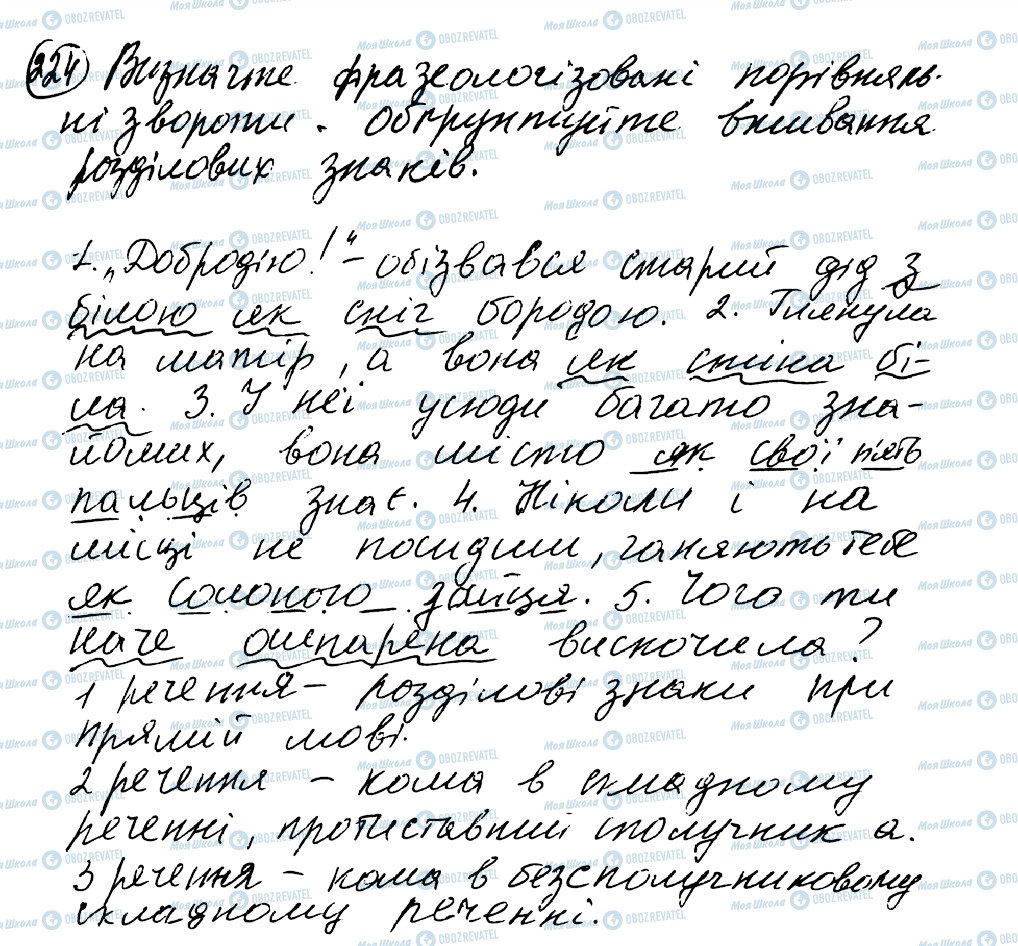 224 Визначте фразеологізовані порівняль-
ні звороти. Обґрунтуйте вживання
розділових знаків.
1. „Добродію!" – обізвався старий дід з
білою як сніг бородою. 2. Глянула
на матір, а вона як стіна бі-
ла. 3. У неї усюди багато зна-
йомих, вона місто як свої п'ять
пальців знає. 4. Ніколи і на
місці не посидиш, ганяють тебе
як солоного зайця. 5. Чого ти
наче ошпарена вискочила?
1 речення – розділові знаки при
прямій мові.
2 речення – кома в складному
реченні, протиставний сполучник а.
3 речення – кома в безсполучниковому
складному реченні.